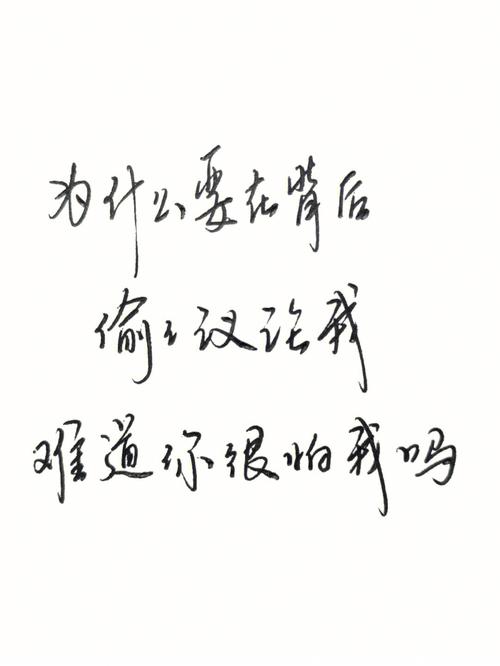 为什么要在背后
偷偷议论我
难道你很怕我吗